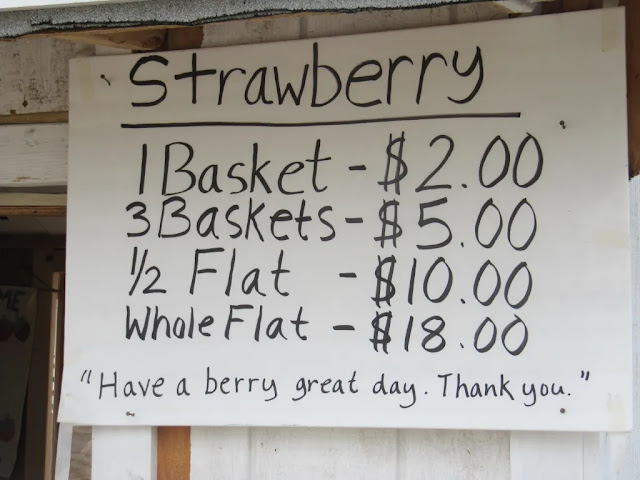 Strawberry
1 Basket - $2.00
3 Baskets - $5.00
1/2 Flat - $10.00
Whole Flat - $18.00
"Have a berry great day. Thank you."
ME